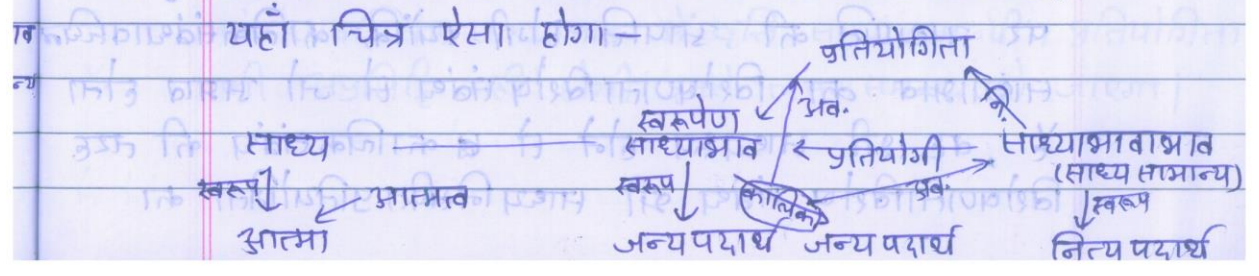 यहाँ चित्र ऐसा होगा–
प्रतियोगिता
स्वरूपेण अव. नि.
साध्य साध्याभाव प्रतियोगी साध्याभावाभाव
(साध्य सामान्य)
स्वरूप आत्मत्व स्वरूप कालिक अव. स्वरूप
आत्मा जन्यपदार्थ जन्यपदार्थ नित्यपदार्थ